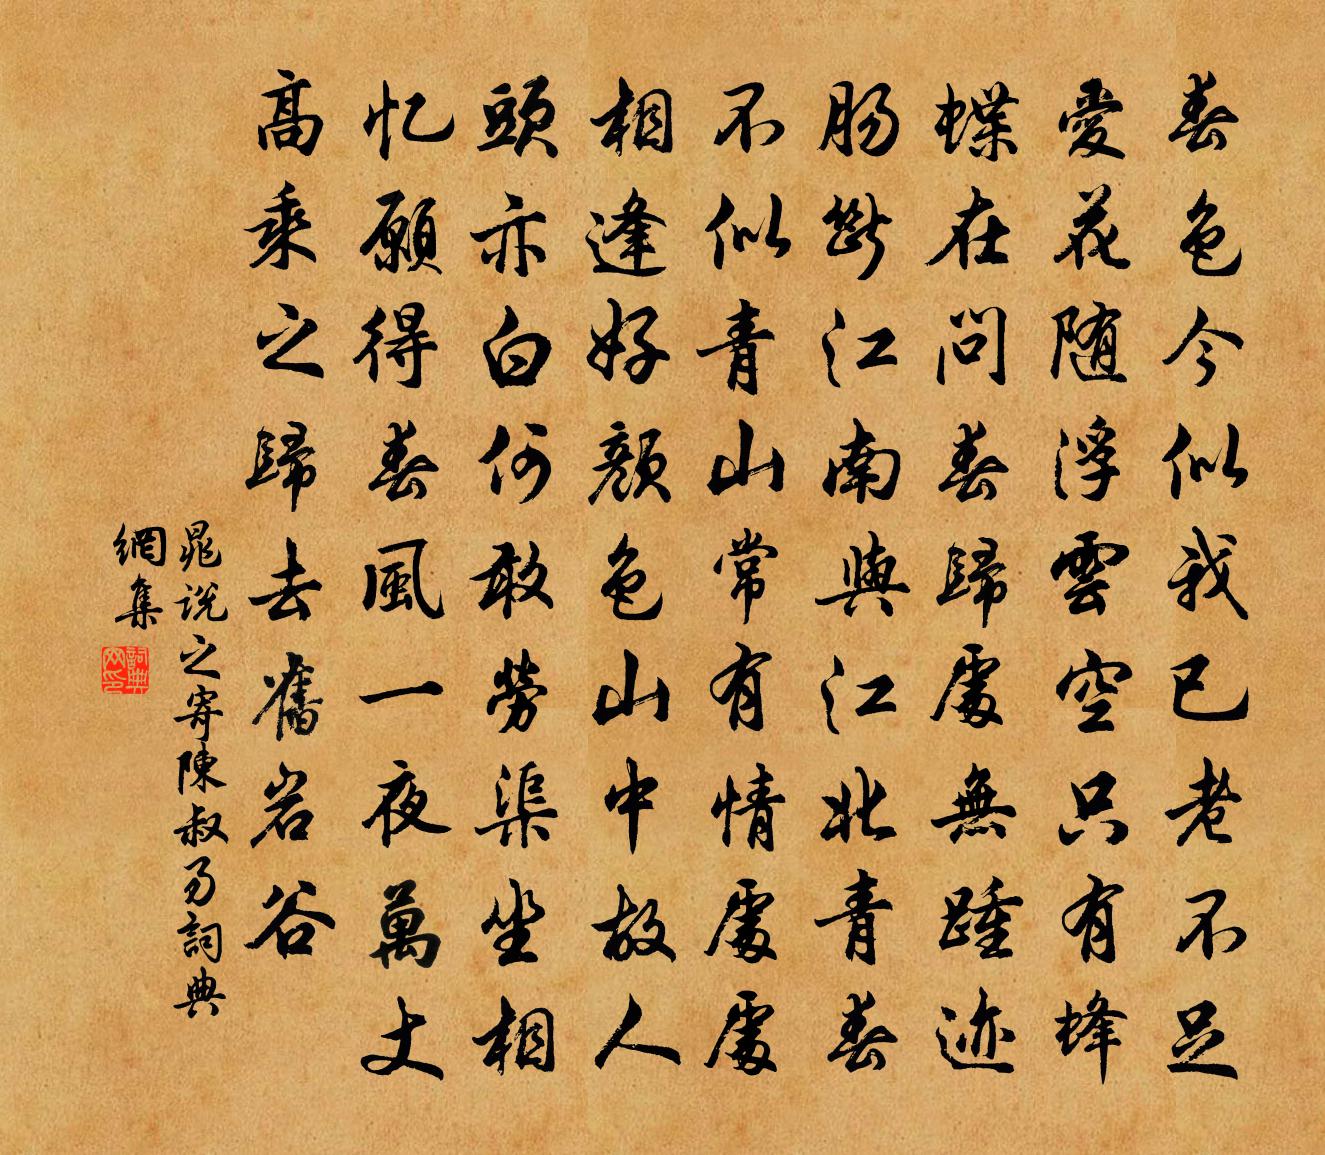 春色今似我已老不足
愛花随浮雲空只有蜂
蝶在问春歸處無踵迹
肠斷江南與江北青春
不似青山常有情處處
相逢好顔色山中故人
頭亦白何敢勞渠坐相
忆願得春風一夜萬丈
高乘之歸去舊岩谷
晁说之寄陳叔易詞典
網集
詞典网印